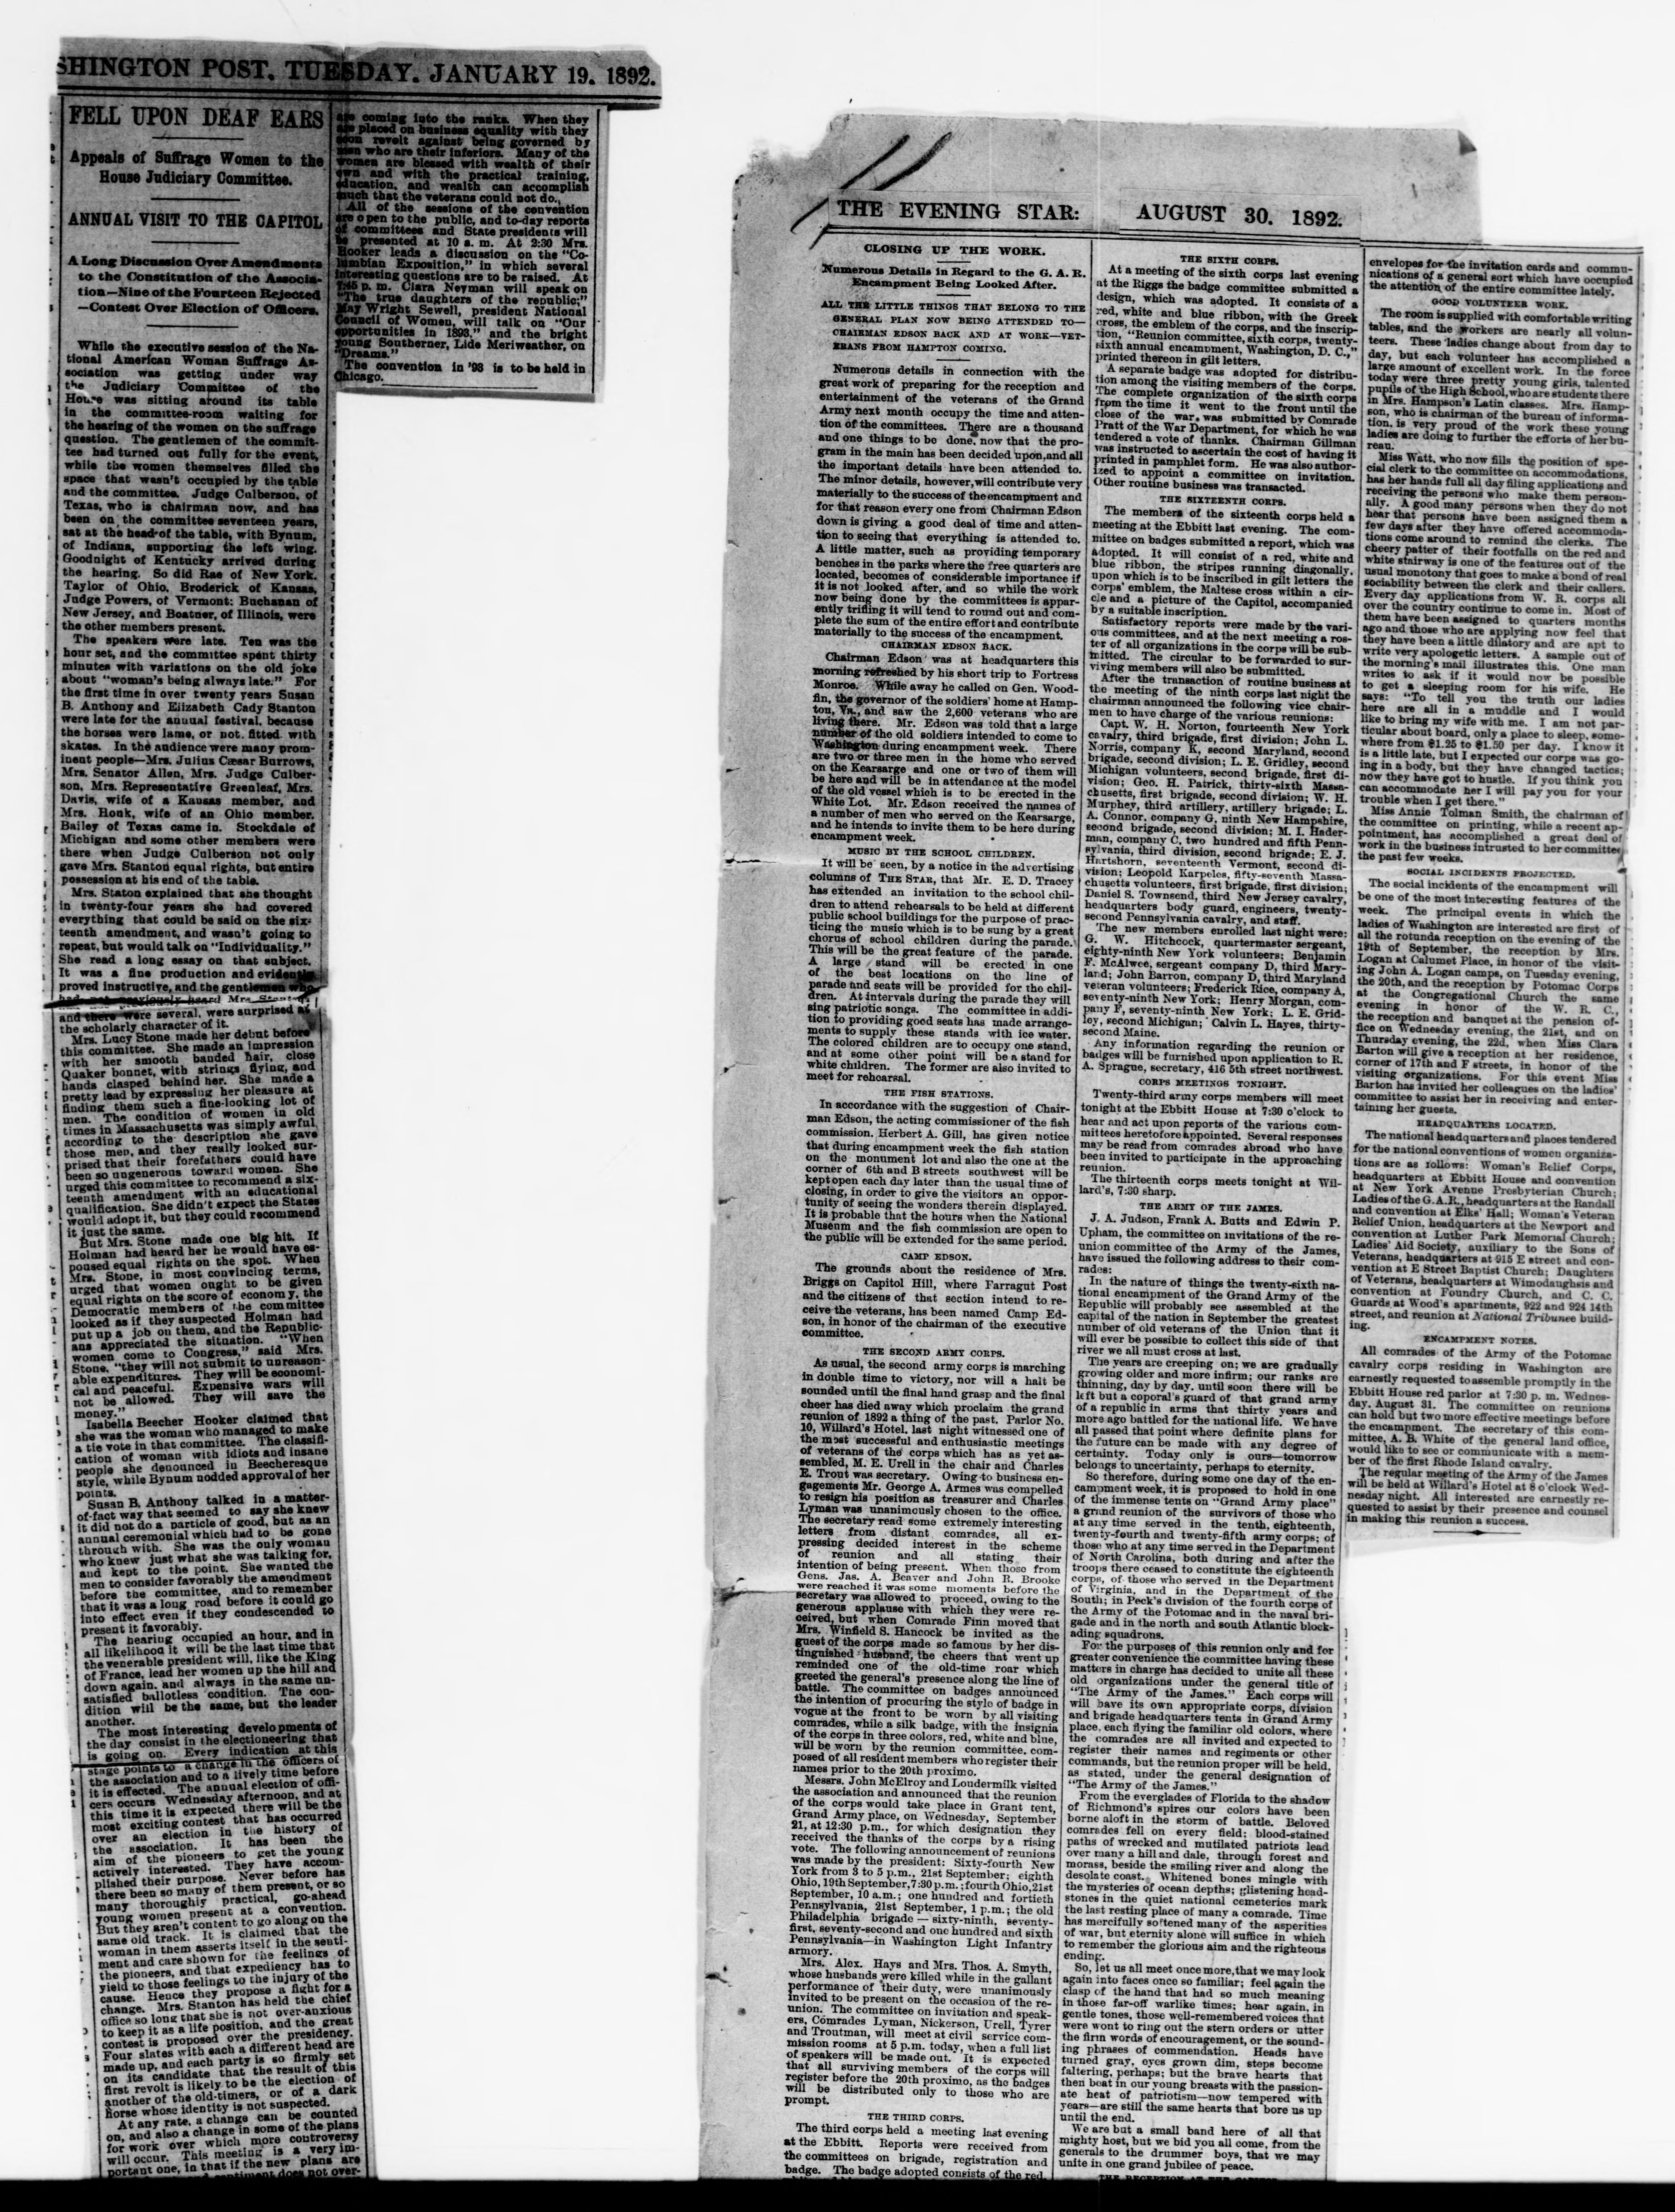 SHINGTON POST. TUESDAY. JANUARY 19. 1892.
FELL UPON DEAF EARS
Appeals of Suffrage Women to the
House Judiciary Committee.
ANNUAL VISIT TO THE CAPITOL
A Long Discussion Over Amendments
to the Constitution of the Associa-
tion—Nine of the Fourteen Rejected
—Contest Over Election of Officers.
While the executive session of the Na-
tional American Woman Suffrage As-
sociation was getting under way
the Judiciary Committee of the
House was sitting around its table
in the committee-room waiting for
the hearing of the women on the suffrage
question. The gentlemen of the commit-
tee had turned out fully for the event,
while the women themselves filled the
space that wasn't occupied by the table
and the committee. Judge Culberson, of
Texas, who is chairman now, and has
been on the committee seventeen years,
sat at the head of the table, with Bynum,
of Indiana, supporting the left wing.
Goodnight of Kentucky arrived during
the hearing. So did Rae of New York.
Taylor of Ohio, Broderick of Kansas,
Judge Powers, of Vermont; Buchanan of
New Jersey, and Boatner, of Illinois, were
the other members present.
The speakers were late. Ten was the
hour set, and the committee spent thirty
minutes with variations on the old joke
about "woman's being always late." For
the first time in over twenty years Susan
B. Anthony and Elizabeth Cady Stanton
were late for the annual festival, because
the horses were lame, or not fitted with
skates. In the audience were many prom-
inent people—Mrs. Julius Cæsar Burrows,
Mrs. Senator Allen, Mrs. Judge Culber-
son, Mrs. Representative Greenleaf, Mrs.
Davis, wife of a Kansas member, and
Mrs. Houk, wife of an Ohio member.
Bailey of Texas came in. Stockdale of
Michigan and some other members were
there when Judge Culberson not only
gave Mrs. Stanton equal rights, but entire
possession at his end of the table.
Mrs. Staton explained that she thought
in twenty-four years she had covered
everything that could be said on the six-
teenth amendment, and wasn't going to
repeat, but would talk on "Individuality."
She read a long essay on that subject.
It was a fine production and evidently
proved instructive, and the gentlemen who
had not previously heard Mrs. Stanton,
and there were several, were surprised at
the scholarly character of it.
Mrs. Lucy Stone made her debut before
this committee. She made an impression
with her smooth banded hair, close
Quaker bonnet, with strings flying, and
hands clasped behind her. She made a
pretty lead by expressing her pleasure at
finding them such a fine-looking lot of
men. The condition of women in old
times in Massachusetts was simply awful,
according to the description she gave
those men, and they really looked sur-
prised that their forefathers could have
been so ungenerous toward women. She
urged this committee to recommend a six-
teenth amendment with an educational
qualification. She didn't expect the States
would adopt it, but they could recommend
it just the same.
But Mrs. Stone made one big hit. If
Holman had heard her he would have es-
poused equal rights on the spot. When
Mrs. Stone, in most convincing terms,
urged that women ought to be given
equal rights on the score of economy, the
Democratic members of the committee
looked as if they suspected Holman had
put up a job on them, and the Republic-
ans appreciated the situation. "When
women come to Congress," said Mrs.
Stone, "they will not submit to unreason-
able expenditures. They will be economi-
cal and peaceful. Expensive wars will
not be allowed. They will save the
money."
Isabella Beecher Hooker claimed that
she was the woman who managed to make
a tie vote in that committee. The classifi-
cation of woman with idiots and insane
people she denounced in Beecheresque
style, while Bynum nodded approval of her
points.
Susan B. Anthony talked in a matter-
of-fact way that seemed to say she knew
it did not do a particle of good, but as an
annual ceremonial which had to be gone
through with. She was the only woman
who knew just what she was talking for,
and kept to the point. She wanted the
men to consider favorably the amendment
before the committee, and to remember
that it was a long road before it could go
into effect even if they condescended to
present it favorably.
The hearing occupied an hour, and in
all likelihood it will be the last time that
the venerable president will, like the King
of France, lead her women up the hill and
down again, and always in the same un-
satisfied ballotless condition. The con-
dition will be the same, but the leader
another.
The most interesting developments of
the day consist in the electioneering that
is going on. Every indication at this
stage points to a change in the officers of
the association and to a lively time before
it is effected. The annual election of offi-
cers occurs Wednesday afternoon, and at
this time it is expected there will be the
most exciting contest that has occurred
over an election in the history of
the association. It has been the
aim of the pioneers to get the young
actively interested. They have accom-
plished their purpose. Never before has
there been so many of them present, or so
many thoroughly practical, go-ahead
young women present at a convention.
But they aren't content to go along on the
same old track. It is claimed that the
woman in them asserts itself in the senti-
ment and care shown for the feelings of
the pioneers, and that expediency has to
yield to those feelings to the injury of the
cause. Hence they propose a fight for a
change. Mrs. Stanton has held the chief
office so long that she is not over-anxious
to keep it as a life position, and the great
contest is proposed over the presidency.
Four slates with each a different head are
made up, and each party is so firmly set
on its candidate that the result of this
first revolt is likely to be the election of
another of the old-timers, or of a dark
horse whose identity is not suspected.
At any rate, a change can be counted
on, and also a change in some of the plans
for work over which more controversy
will occur. This meeting is a very im-
portant one, in that if the new plans are
sentiment does not over-
are coming into the ranks. When they
are placed on business equality with they
soon revolt against being governed by
men who are their inferiors. Many of the
women are blessed with wealth of their
own and with the practical training,
education, and wealth can accomplish
much that the veterans could not do.
All of the sessions of the convention
are open to the public, and to-day reports
of committees and State presidents will
be presented at 10 a. m. At 2:30 Mrs.
Hooker leads a discussion on the "Co-
lumbian Exposition," in which several
interesting questions are to be raised. At
7:45 p. m. Clara Neyman will speak on
"The true daughters of the republic;"
May Wright Sewell, president National
Council of Women, will talk on "Our
opportunities in 1893," and the bright
young Southerner, Lide Meriweather, on
"Dreams."
The convention in '93 is to be held in
Chicago.
THE EVENING STAR: AUGUST 30. 1892.
CLOSING UP THE WORK.
Numerous Details in Regard to the G. A. R.
Encampment Being Looked After.
ALL THE LITTLE THINGS THAT BELONG TO THE
GENERAL PLAN NOW BEING ATTENDED TO—
CHAIRMAN EDSON BACK AND AT WORK—VET-
ERANS FROM HAMPTON COMING.
Numerous details in connection with the
great work of preparing for the reception and
entertainment of the veterans of the Grand
Army next month occupy the time and atten-
tion of the committees. There are a thousand
and one things to be done, now that the pro-
gram in the main has been decided upon, and all
the important details have been attended to.
The minor details, however, will contribute very
materially to the success of the encampment and
for that reason every one from Chairman Edson
down is giving a good deal of time and atten-
tion to seeing that everything is attended to.
A little matter, such as providing temporary
benches in the parks where the free quarters are
located, becomes of considerable importance if
it is not looked after, and so while the work
now being done by the committees is appar-
ently trifling it will tend to round out and com-
plete the sum of the entire effort and contribute
materially to the success of the encampment.
CHAIRMAN EDSON BACK.
Chairman Edson was at headquarters this
morning refreshed by his short trip to Fortress
Monroe. While away he called on Gen. Wood-
fin, the governor of the soldiers' home at Hamp-
ton, Va., and saw the 2,600 veterans who are
living there. Mr. Edson was told that a large
number of the old soldiers intended to come to
Washington during encampment week. There
are two or three men in the home who served
on the Kearsarge and one or two of them will
be here and will be in attendance at the model
of the old vessel which is to be erected in the
White Lot. Mr. Edson received the names of
a number of men who served on the Kearsarge,
and he intends to invite them to be here during
encampment week.
MUSIC BY THE SCHOOL CHILDREN.
It will be seen, by a notice in the advertising
columns of THE STAR, that Mr. E. D. Tracey
has extended an invitation to the school chil-
dren to attend rehearsals to be held at different
public school buildings for the purpose of prac-
ticing the music which is to be sung by a great
chorus of school children during the parade.
This will be the great feature of the parade.
A large stand will be erected in one
of the best locations on the line of
parade and seats will be provided for the chil-
dren. At intervals during the parade they will
sing patriotic songs. The committee in addi-
tion to providing good seats has made arrange-
ments to supply these stands with ice water.
The colored children are to occupy one stand,
and at some other point will be a stand for
white children. The former are also invited to
meet for rehearsal.
THE FISH STATIONS.
In accordance with the suggestion of Chair-
man Edson, the acting commissioner of the fish
commission, Herbert A. Gill, has given notice
that during encampment week the fish station
on the monument lot and also the one at the
corner of 6th and B streets southwest will be
kept open each day later than the usual time of
closing, in order to give the visitors an oppor-
tunity of seeing the wonders therein displayed.
It is probable that the hours when the National
Museum and the fish commission are open to
the public will be extended for the same period.
CAMP EDSON.
The grounds about the residence of Mrs.
Briggs on Capitol Hill, where Farragut Post
and the citizens of that section intend to re-
ceive the veterans, has been named Camp Ed-
son, in honor of the chairman of the executive
committee.
THE SECOND ARMY CORPS.
As usual, the second army corps is marching
in double time to victory, nor will a halt be
sounded until the final hand grasp and the final
cheer has died away which proclaim the grand
reunion of 1892 a thing of the past. Parlor No.
10, Willard's Hotel, last night witnessed one of
the most successful and enthusiastic meetings
of veterans of the corps which has as yet as-
sembled, M. E. Urell in the chair and Charles
E. Trout was secretary. Owing to business en-
gagements Mr. George A. Armes was compelled
to resign his position as treasurer and Charles
Lyman was unanimously chosen to the office.
The secretary read some extremely interesting
letters from distant comrades, all ex-
pressing decided interest in the scheme
of reunion and all stating their
intention of being present. When those from
Gens. Jas. A. Beaver and John R. Brooke
were reached it was some moments before the
secretary was allowed to proceed, owing to the
generous applause with which they were re-
ceived, but when Comrade Finn moved that
Mrs. Winfield S. Hancock be invited as the
guest of the corps made so famous by her dis-
tinguished husband, the cheers that went up
reminded one of the old-time roar which
greeted the general's presence along the line of
battle. The committee on badges announced
the intention of procuring the style of badge in
vogue at the front to be worn by all visiting
comrades, while a silk badge, with the insignia
of the corps in three colors, red, white and blue,
will be worn by the reunion committee, com-
posed of all resident members who register their
names prior to the 20th proximo.
Messrs. John McElroy and Loudermilk visited
the association and announced that the reunion
of the corps would take place in Grant tent,
Grand Army place, on Wednesday, September
21, at 12:30 p.m., for which designation they
received the thanks of the corps by a rising
vote. The following announcement of reunions
was made by the president: Sixty-fourth New
York from 3 to 5 p.m., 21st September; eighth
Ohio, 19th September, 7:30 p.m.; fourth Ohio, 21st
September, 10 a.m.; one hundred and fortieth
Pennsylvania, 21st September, 1 p.m.; the old
Philadelphia brigade — sixty-ninth, seventy-
first, seventy-second and one hundred and sixth
Pennsylvania—in Washington Light Infantry
armory.
Mrs. Alex. Hays and Mrs. Thos. A. Smyth,
whose husbands were killed while in the gallant
performance of their duty, were unanimously
invited to be present on the occasion of the re-
union. The committee on invitation and speak-
ers, Comrades Lyman, Nickerson, Urell, Tyrer
and Troutman, will meet at civil service com-
mission rooms at 5 p.m. today, when a full list
of speakers will be made out. It is expected
that all surviving members of the corps will
register before the 20th proximo, as the badges
will be distributed only to those who are
prompt.
THE THIRD CORPS.
The third corps held a meeting last evening
at the Ebbitt. Reports were received from
the committees on brigade, registration and
badge. The badge adopted consists of the red,
THE SIXTH CORPS.
At a meeting of the sixth corps last evening
at the Riggs the badge committee submitted a
design, which was adopted. It consists of a
red, white and blue ribbon, with the Greek
cross, the emblem of the corps, and the inscrip-
tion, "Reunion committee, sixth corps, twenty-
sixth annual encampment, Washington, D. C.,"
printed thereon in gilt letters.
A separate badge was adopted for distribu-
tion among the visiting members of the corps.
The complete organization of the sixth corps
from the time it went to the front until the
close of the war was submitted by Comrade
Pratt of the War Department, for which he was
tendered a vote of thanks. Chairman Gillman
was instructed to ascertain the cost of having it
printed in pamphlet form. He was also author-
ized to appoint a committee on invitation.
Other routine business was transacted.
THE SIXTEENTH CORPS.
The members of the sixteenth corps held a
meeting at the Ebbitt last evening. The com-
mittee on badges submitted a report, which was
adopted. It will consist of a red, white and
blue ribbon, the stripes running diagonally,
upon which is to be inscribed in gilt letters the
corps' emblem, the Maltese cross within a cir-
cle and a picture of the Capitol, accompanied
by a suitable inscription.
Satisfactory reports were made by the vari-
ous committees, and at the next meeting a ros-
ter of all organizations in the corps will be sub-
mitted. The circular to be forwarded to sur-
viving members will also be submitted.
After the transaction of routine business at
the meeting of the ninth corps last night the
chairman announced the following vice chair-
men to have charge of the various reunions:
Capt. W. H. Norton, fourteenth New York
cavalry, third brigade, first division; John L.
Norris, company K, second Maryland, second
brigade, second division; L. E. Gridley, second
Michigan volunteers, second brigade, first di-
vision; Geo. H. Patrick, thirty-sixth Massa-
chusetts, first brigade, second division; W. H.
Murphey, third artillery, artillery brigade; L.
A. Connor, company G, ninth New Hampshire,
second brigade, second division; M. I. Hader-
man, company C, two hundred and fifth Penn-
sylvania, third division, second brigade; E. J.
Hartshorn, seventeenth Vermont, second di-
vision; Leopold Karpeles, fifty-seventh Massa-
chusetts volunteers, first brigade, first division;
Daniel S. Townsend, third New Jersey cavalry,
headquarters body guard, engineers, twenty-
second Pennsylvania cavalry, and staff.
The new members enrolled last night were:
G. W. Hitchcock, quartermaster sergeant,
eighty-ninth New York volunteers; Benjamin
F. McAlwee, sergeant company D, third Mary-
land; John Barron, company D, third Maryland
veteran volunteers; Frederick Rice, company A,
seventy-ninth New York; Henry Morgan, com-
pany F, seventy-ninth New York; L. E. Grid-
ley, second Michigan; Calvin L. Hayes, thirty-
second Maine.
Any information regarding the reunion or
badges will be furnished upon application to R.
A. Sprague, secretary, 416 5th street northwest.
CORPS MEETINGS TONIGHT.
Twenty-third army corps members will meet
tonight at the Ebbitt House at 7:30 o'clock to
hear and act upon reports of the various com-
mittees heretofore appointed. Several responses
may be read from comrades abroad who have
been invited to participate in the approaching
reunion.
The thirteenth corps meets tonight at Wil-
lard's, 7:30 sharp.
THE ARMY OF THE JAMES.
J. A. Judson, Frank A. Butts and Edwin P.
Upham, the committee on invitations of the re-
union committee of the Army of the James,
have issued the following address to their com-
rades:
In the nature of things the twenty-sixth na-
tional encampment of the Grand Army of the
Republic will probably see assembled at the
capital of the nation in September the greatest
number of old veterans of the Union that it
will ever be possible to collect this side of that
river we all must cross at last.
The years are creeping on; we are gradually
growing older and more infirm; our ranks are
thinning, day by day, until soon there will be
left but a coporal's guard of that grand army
of a republic in arms that thirty years and
more ago battled for the national life. We have
all passed that point where definite plans for
the future can be made with any degree of
certainty. Today only is ours—tomorrow
belongs to uncertainty, perhaps to eternity.
So therefore, during some one day of the en-
campment week, it is proposed to hold in one
of the immense tents on "Grand Army place"
a grand reunion of the survivors of those who
at any time served in the tenth, eighteenth,
twenty-fourth and twenty-fifth army corps; of
those who at any time served in the Department
of North Carolina, both during and after the
troops there ceased to constitute the eighteenth
corps, of those who served in the Department
of Virginia, and in the Department of the
South; in Peck's division of the fourth corps of
the Army of the Potomac and in the naval bri-
gade and in the north and south Atlantic block-
ading squadrons.
For the purposes of this reunion only and for
greater convenience the committee having these
matters in charge has decided to unite all these
old organizations under the general title of
"The Army of the James." Each corps will
will have its own appropriate corps, division
and brigade headquarters tents in Grand Army
place, each flying the familiar old colors, where
the comrades are all invited and expected to
register their names and regiments or other
commands, but the reunion proper will be held,
as stated, under the general designation of
"The Army of the James."
From the everglades of Florida to the shadow
of Richmond's spires our colors have been
borne aloft in the storm of battle. Beloved
comrades fell on every field; blood-stained
paths of wrecked and mutilated patriots lead
over many a hill and dale, through forest and
morass, beside the smiling river and along the
desolate coast. Whitened bones mingle with
the mysteries of ocean depths; glistening head-
stones in the quiet national cemeteries mark
the last resting place of many a comrade. Time
has mercifully softened many of the asperities
of war, but eternity alone will suffice in which
to remember the glorious aim and the righteous
ending.
So, let us all meet once more, that we may look
again into faces once so familiar; feel again the
clasp of the hand that had so much meaning
in those far-off warlike times; hear again, in
gentle tones, those well-remembered voices that
were wont to ring out the stern orders or utter
the firm words of encouragement, or the sound-
ing phrases of commendation. Heads have
turned gray, eyes grown dim, steps become
faltering, perhaps; but the brave hearts that
then beat in our young breasts with the passion-
ate heat of patriotism—now tempered with
years—are still the same hearts that bore us up
until the end.
We are but a small band here of all that
mighty host, but we bid you all come, from the
generals to the drummer boys, that we may
unite in one grand jubilee of peace.
envelopes for the invitation cards and commu-
nications of a general sort which have occupied
the attention of the entire committee lately.
GOOD VOLUNTEER WORK.
The room is supplied with comfortable writing
tables, and the workers are nearly all volun-
teers. These ladies change about from day to
day, but each volunteer has accomplished a
large amount of excellent work. In the force
today were three pretty young girls, talented
pupils of the High School, who are students there
in Mrs. Hampson's Latin classes. Mrs. Hamp-
son, who is chairman of the bureau of informa-
tion, is very proud of the work these young
ladies are doing to further the efforts of her bu-
reau.
Miss Watt, who now fills the position of spe-
cial clerk to the committee on accommodations,
has her hands full all day filing applications and
receiving the persons who make them person-
ally. A good many persons when they do not
hear that persons have been assigned them a
few days after they have offered accommoda-
tions come around to remind the clerks. The
cheery patter of their footfalls on the red and
white stairway is one of the features out of the
usual monotony that goes to make a bond of real
sociability between the clerk and their callers.
Every day applications from W. R. corps all
over the country continue to come in. Most of
them have been assigned to quarters months
ago and those who are applying now feel that
they have been a little dilatory and are apt to
write very apologetic letters. A sample out of
the morning's mail illustrates this. One man
writes to ask if it would now be possible
to get a sleeping room for his wife. He
says: "To tell you the truth our ladies
here are all in a muddle and I would
like to bring my wife with me. I am not par-
ticular about board, only a place to sleep, some-
where from $1.25 to $1.50 per day. I know it
is a little late, but I expected our corps was go-
ing in a body, but they have changed tactics;
now they have got to hustle. If you think you
can accommodate her I will pay you for your
trouble when I get there."
Miss Annie Tolman Smith, the chairman of
the committee on printing, while a recent ap-
pointment, has accomplished a great deal of
work in the business intrusted to her committee
the past few weeks.
SOCIAL INCIDENTS PROJECTED.
The social incidents of the encampment will
be one of the most interesting features of the
week. The principal events in which the
ladies of Washington are interested are first of
all the rotunda reception on the evening of the
19th of September, the reception by Mrs.
Logan at Calumet Place, in honor of the visit-
ing John A. Logan camps, on Tuesday evening,
the 20th, and the reception by Potomac Corps
at the Congregational Church the same
evening in honor of the W. R. C.,
the reception and banquet at the pension of-
fice on Wednesday evening, the 21st, and on
Thursday evening, the 22d, when Miss Clara
Barton will give a reception at her residence,
corner of 17th and F streets, in honor of the
visiting organizations. For this event Miss
Barton has invited her colleagues on the ladies'
committee to assist her in receiving and enter-
taining her guests.
HEADQUARTERS LOCATED.
The national headquarters and places tendered
for the national conventions of women organiza-
tions are as follows: Woman's Relief Corps,
headquarters at Ebbitt House and convention
at New York Avenue Presbyterian Church;
Ladies of the G.A.R., headquarters at the Randall
and convention at Elks' Hall; Woman's Veteran
Relief Union, headquarters at the Newport and
convention at Luther Park Memorial Church;
Ladies' Aid Society, auxiliary to the Sons of
Veterans, headquarters at 915 E street and con-
vention at E Street Baptist Church; Daughters
of Veterans, headquarters at Wimodaughsis and
convention at Foundry Church, and C. C.
Guards at Wood's apartments, 922 and 924 14th
street, and reunion at National Tribunee build-
ing.
ENCAMPMENT NOTES.
All comrades of the Army of the Potomac
cavalry corps residing in Washington are
earnestly requested to assemble promptly in the
Ebbitt House red parlor at 7:30 p. m. Wednes-
day, August 31. The committee on reunions
can hold but two more effective meetings before
the encampment. The secretary of this com-
mittee, A. B. White of the general land office,
would like to see or communicate with a mem-
ber of the first Rhode Island cavalry.
The regular meeting of the Army of the James
will be held at Willard's Hotel at 8 o'clock Wed-
nesday night. All interested are earnestly re-
quested to assist by their presence and counsel
in making this reunion a success.